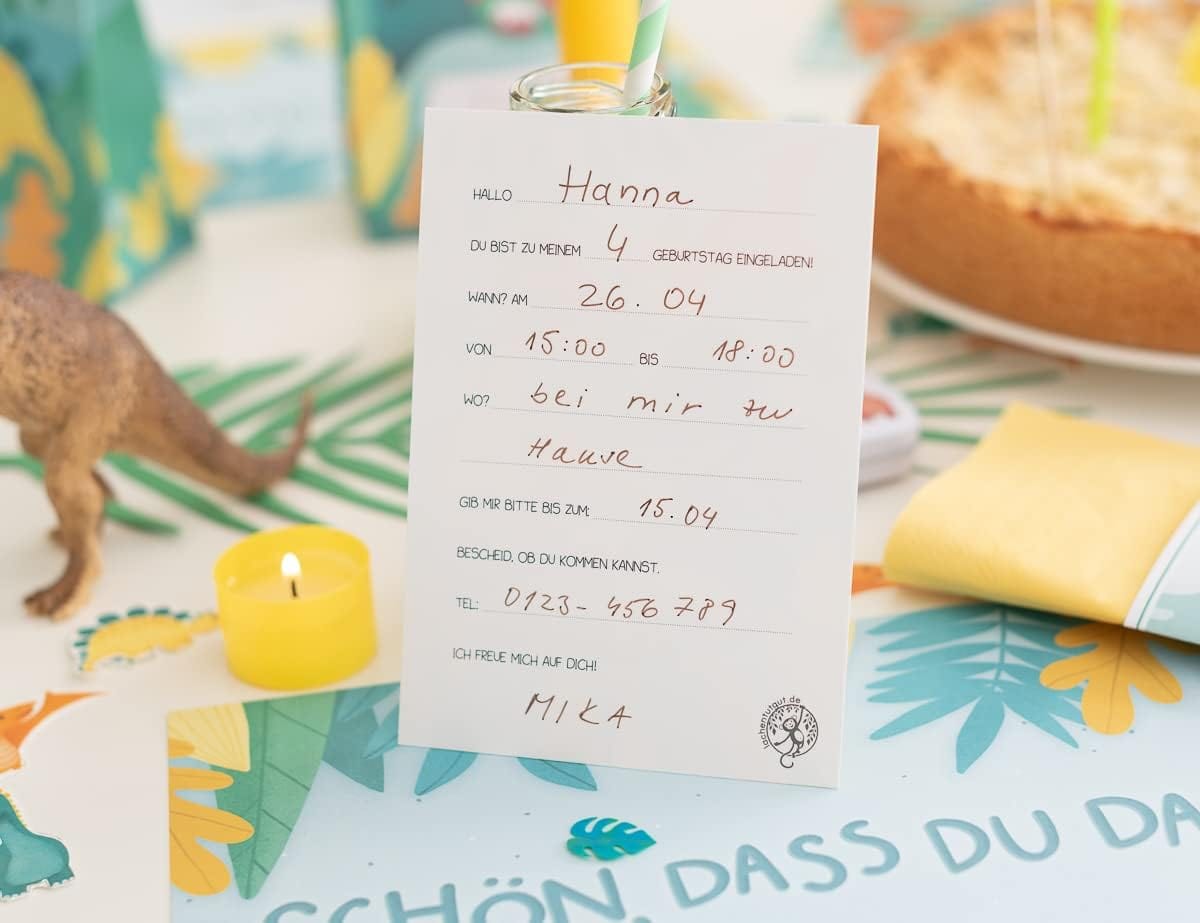 HALLO Hanna
DU BIST ZU MEINEM 4 GEBURTSTAG EINGELADEN!
WANN? AM 26. 04
VON 15:00 BIS 18:00
WO? bei mir zu
Hause
GIB MIR BITTE BIS ZUM: 15.04
BESCHEID, OB DU KOMMEN KANNST.
TEL: 0123- 456 789
ICH FREUE MICH AUF DICH!
MIKA
lachentutgut.de
SCHÖN, DASS DU DA